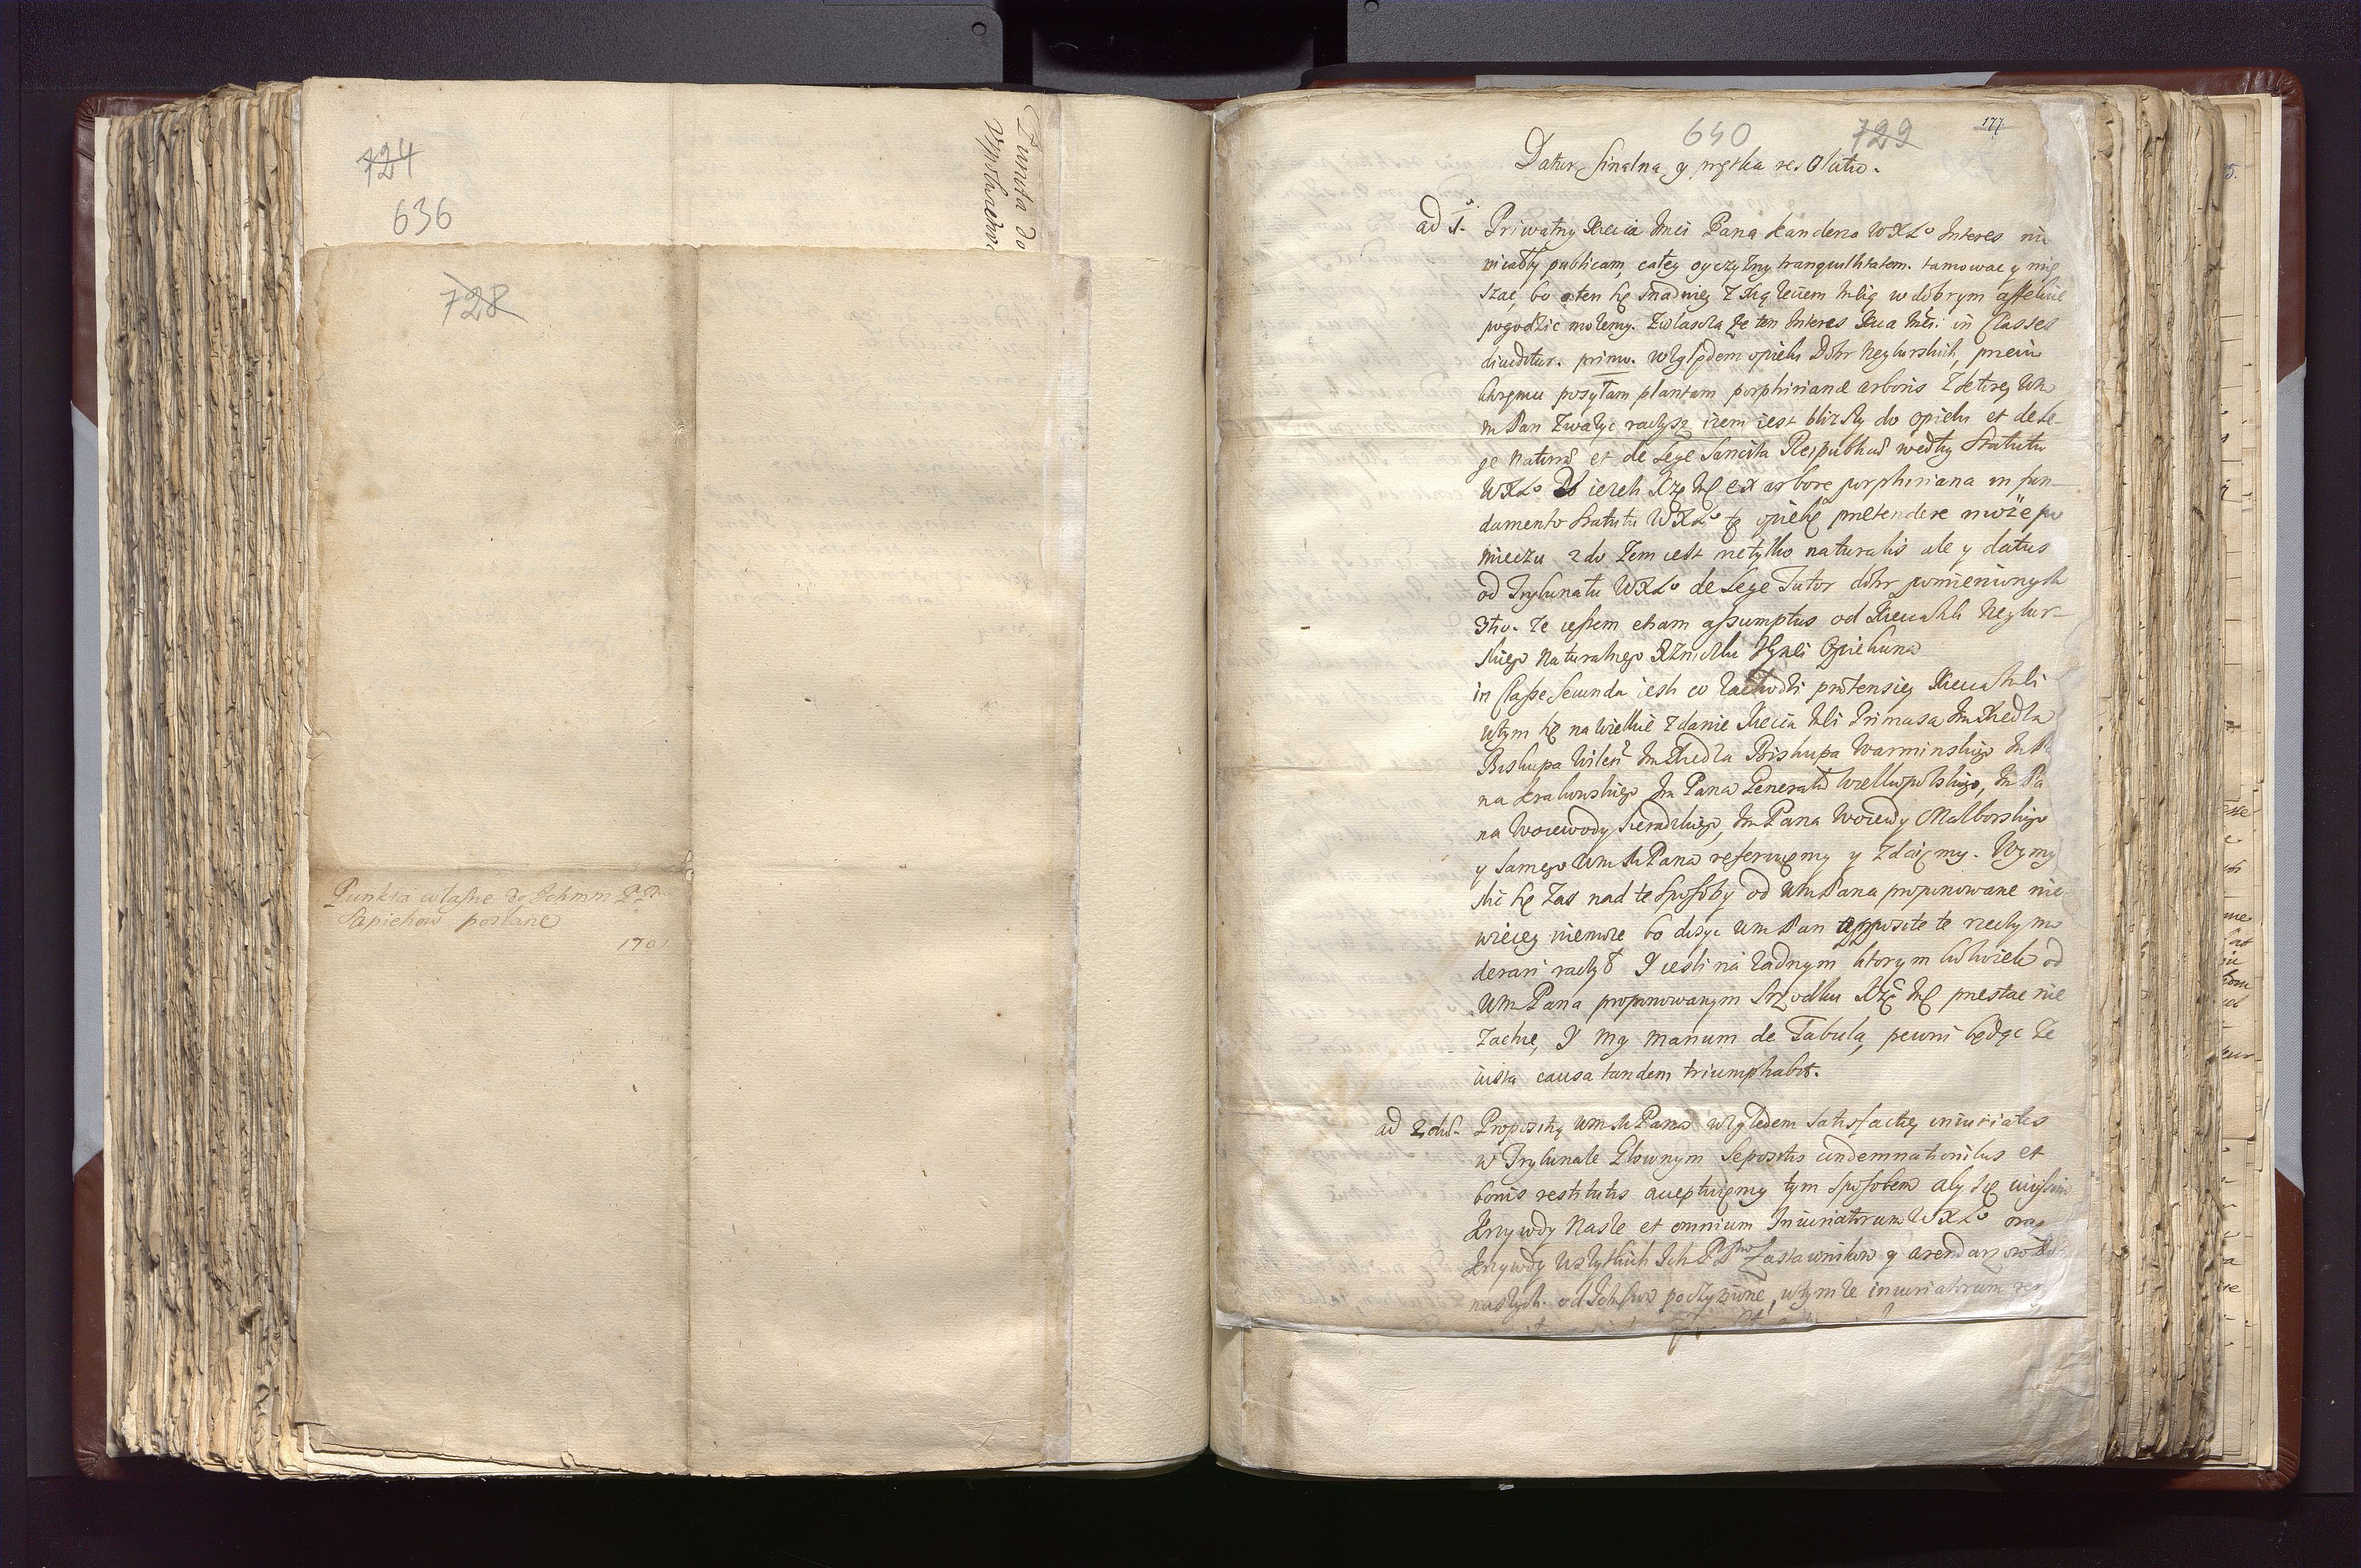 724
636
728
Punkta własne do Ichmm PP.
Sapiehow posłane
170
Punkta do
640 729 177
Datur finalna y prętka resolutio.
ad 1. Priwatny Xcia Imci Pana Kanclerza WXLo Interes nie
miałby publicam całey oyczyzny tranquillitatem. tamowac y mię
szac, bo o ten się snadniey z Xciem Imcią w dobrym affekcie
pogodzic możemy. Zwłaszcza że ten Interes Xcia Imci in Classes
diuiditur. primo. względem opieki Dobr Neyburskich, przeciw
ktoremu posyłam plantam porphirianae arboris z ktorey Wm
m Pan zwazyc raczysz izem iest blizszy do opieki et de le-
ge naturae et de Lege Sancita Reipublicae według Statutu
WXLo iezeli Xże Imć ex arbore porphiriana in fun-
damento Statutu WXLo tę opiekę praetendere może po
mieczu 2do Zem iest nietylko naturalis ale y datus
od Trybunału WXLo de Lege Tutor dobr pomienionych
3tio. Ze iestem etiam assumptus od Xcia Imci Neybur-
skiego Naturalnego Xzniczki Opiekuna
in Classe Secunda iest co zachodzi praetensiey Xcia Imci
w tym się na wielkie zdanie Xcia Imci Primasa Im Xiedza
Biskupa Wilen Im Xiedza Biskupa Warminskiego Im Pa
na Krakowskiego Im Pana Generała Wielkopolskiego, Im Pa
na Woiewody Sieradzkiego, Im Pana Woiewody Malborskiego
y samego Wm M Pana referuięmy y zdaięmy. Wymy
slic się zas nad te sposoby od Wm Pana proponowane nic
wiecey niemoże bo dosyc Wm Pan apposite te rzeczy mo
derari raczył Y iesli na żadnym ktorymkolwiek od
Wm Pana proponowanym srzodku Xże Imć przestac nie
zachce, Y my manum de Tabula, pewni będąc że
iusta causa tandem triumphabit.
ad 2dum. Propozitię Wm M Pana względem Satisfactiey iniuriatis
w Trybunale Głownym Sepositis condemnationibus et
bonis restitutis acceptuięmy tym sposobem aby się
krzywdy nasze et omnium Iniuriatorum WXLo oraz
krzywdy wszytkich Ich PP Zastawnikow y arendarzow
naszych. od Ich poczynione, w tym że iniuriatorum